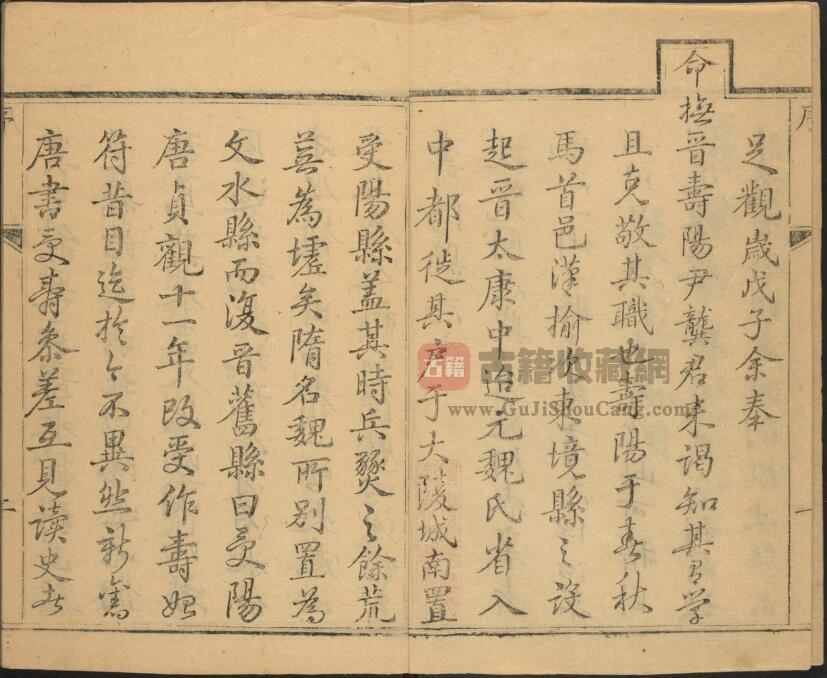 序
一
足觀歲戊子余奉
命撫晉壽陽尹龔君来謁知其有学
且克敬其職也壽陽于春秋
馬首邑漢榆次東境縣之設
起晋太康中迨元魏氏省入
中都徙其户于大陵城南置
受陽縣蓋其時兵燹之餘荒
蕪為墟矣隋名魏所别置為
文水縣而復晋舊縣曰受陽
唐貞觀十一年改受作壽始
符昔目迄於今不異然新舊
唐書受壽叅差互見读史者
序
二
古籍
古籍收藏網
www.GuJiShouCang.com